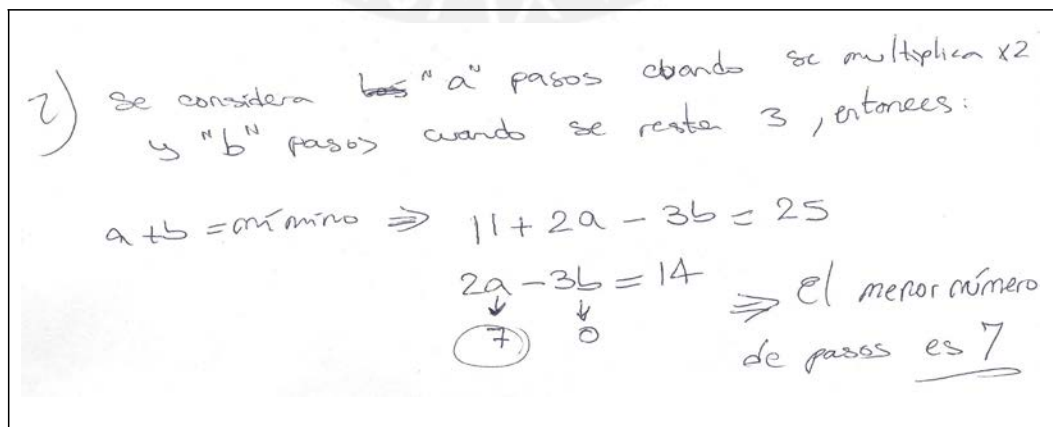 2) Se considera "a" pasos cuando se multiplica x2
y "b" pasos cuando se resta 3, entonces:
a+b = mínimo ⇒ 11 + 2a - 3b = 25
2a - 3b = 14
↓ ↓
7 0
⇒ El menor número
de pasos es 7